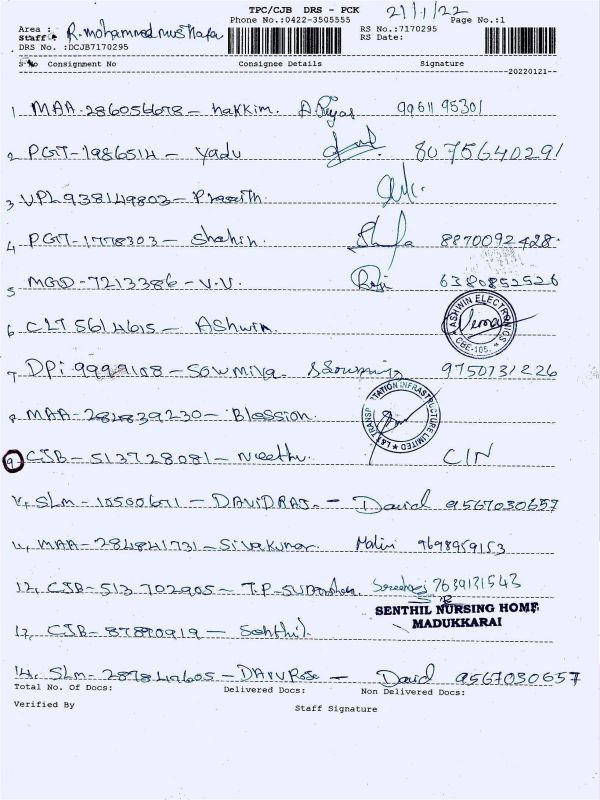 TPC/CJB DRS - PCK 21/1/22
Phone No.:0422-3505555 Page No.:1
Area : RS No.:7170295
Staff : R.mohammed musthafa RS Date:
DRS No. :DCJB7170295
S No Consignment No Consignee Details Signature
20220121
1 MAA-286056678 - hakkim. A.Riyas 99611 95301
2 PGT-1986514 - Yadu 8075640291
3 VPL938149803 - Prasith.
4 PGT-1778303 - Shahin. 8870092428.
5 MGD-7213386 - V.V. Raji 6380852526
6 CLT5614615 - Ashwin
ASHWIN ELECTRONICS CBE-105.
7 DPi 9999108 - Sowmiya. S Sowmiya 9750731226
8 MAA-282839230 - Blession.
L&T TRANSPORTATION INFRASTRUCTURE LIMITED
9 CJB-513728081 - Neethu. CIN
10, SLM-10500671 - DAVIDRAJ. - David 9567030657
11, MAA-284841731 - Sivakumar. Malini 9698959153
12, CJB-513702905 - T.P-SUDarshan. 7639131543
SENTHIL NURSING HOME
MADUKKARAI
13, CJB-87890919 - Senthil.
14, SLM-287847605 - DAIVRose - David 9567030657
Total No. Of Docs: Delivered Docs: Non Delivered Docs:
Verified By Staff Signature